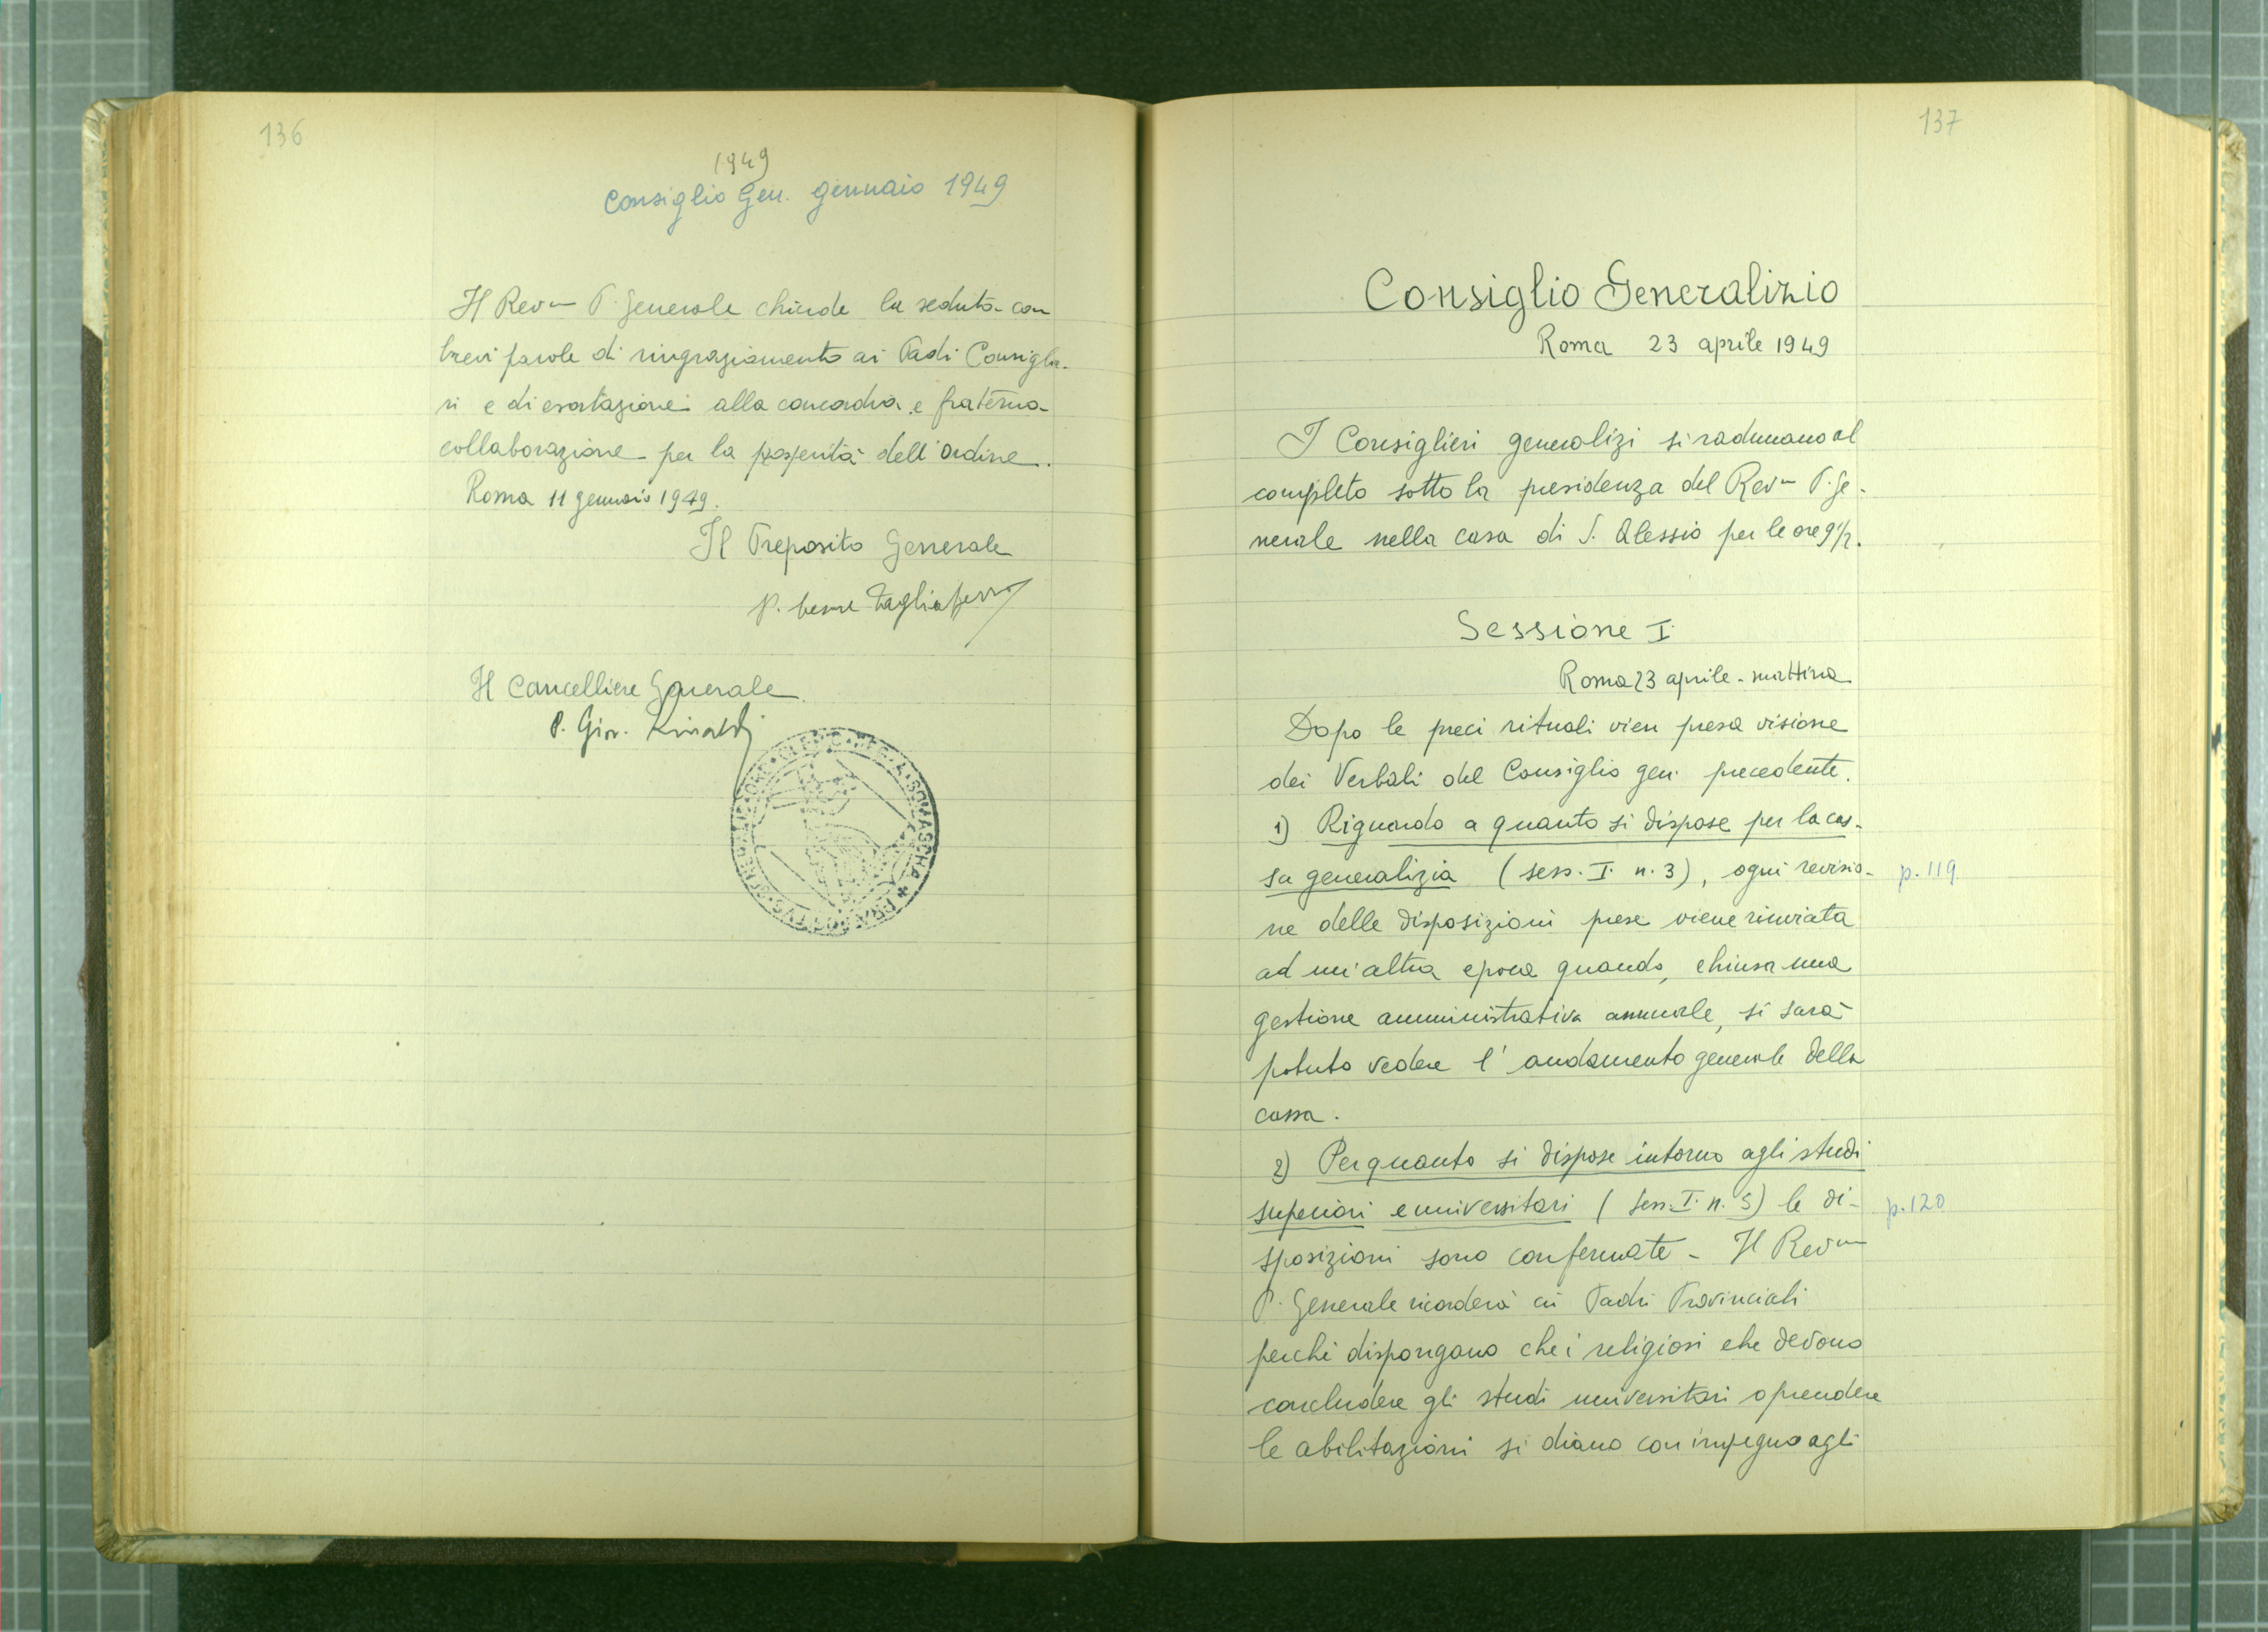 136
1949
Consiglio Gen. gennaio 1949
Il Revmo P. Generale chiude la seduta con
brevi parole di ringraziamento ai Padri Consiglie-
ri e di esortazione alla concordia e fraterna
collaborazione per la prosperità dell'Ordine.
Roma 11 gennaio 1949.
Il Preposito Generale
P. Cesare Tagliaferro
Il Cancelliere Generale
P. Giov. Rinaldi
137
Consiglio Generalizio
Roma 23 aprile 1949
I Consiglieri generalizi si radunano al
completo sotto la presidenza del Revmo P. Ge-
nerale nella casa di S. Alessio per le ore 9 1/2.
Sessione I
Roma 23 aprile - mattina
Dopo le preci rituali vien presa visione
dei Verbali del Consiglio gen. precedente.
1) Riguardo a quanto si dispose per la cas-
sa generalizia (sess. I. n. 3), ogni revisio-
p. 119
ne delle disposizioni prese viene rinviata
ad un'altra epoca quando, chiusa una
gestione amministrativa annuale, si sarà
potuto vedere l'andamento generale della
cassa.
2) Per quanto si dispose intorno agli studi
superiori e universitari (sess. I. n. 5) le di-
p. 120
sposizioni sono confermate - Il Revmo
P. Generale ricorderà ai Padri Provinciali
perché dispongano che i religiosi che devono
concludere gli studi universitari o prendere
le abilitazioni si diano con impegno agli